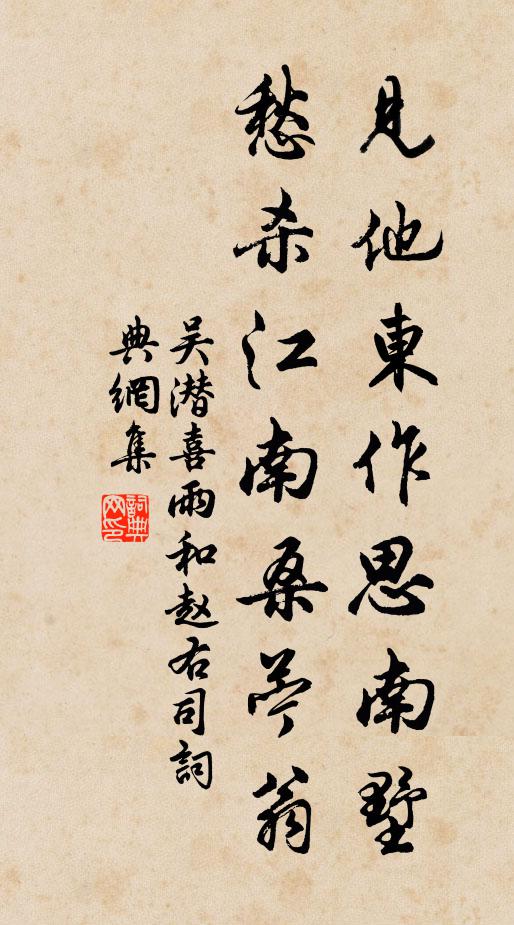 見他東作思南墅
愁杀江南桑苧翁
吴潜喜雨和赵右司詞
典網集
詞典網印